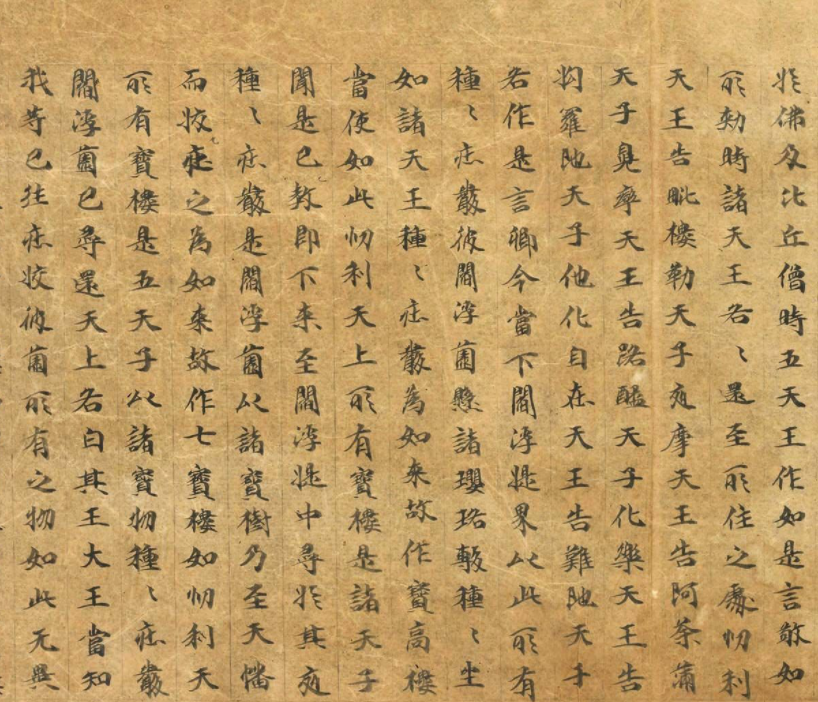 於佛及比丘僧時五天王作如是言敬如
所勑時諸天王各〻還至所住之處忉利
天王告毗樓勒天子夜摩天王告阿荼蒲
天子兜率天王告路醯天子化樂天王告
拘羅陁天子他化自在天王告難陁天子
各作是言卿今當下閻浮提界以此所有
種〻庄嚴彼閻浮薗懸諸瓔珞敷種〻坐
如諸天王種〻庄嚴為如來故作寶高樓
當使如此忉利天上所有寶樓是諸天子
聞是已教即下來至閻浮提中尋於其夜
種〻庄嚴是閻浮薗以諸寶樹乃至天幡
而挍庄之為如來故作七寶樓如忉利天
所有寶樓是五天子以諸寶物種〻庄嚴
閻浮薗已尋還天上各白其王大王當知
我等已往庄挍彼薗所有之物如此无異